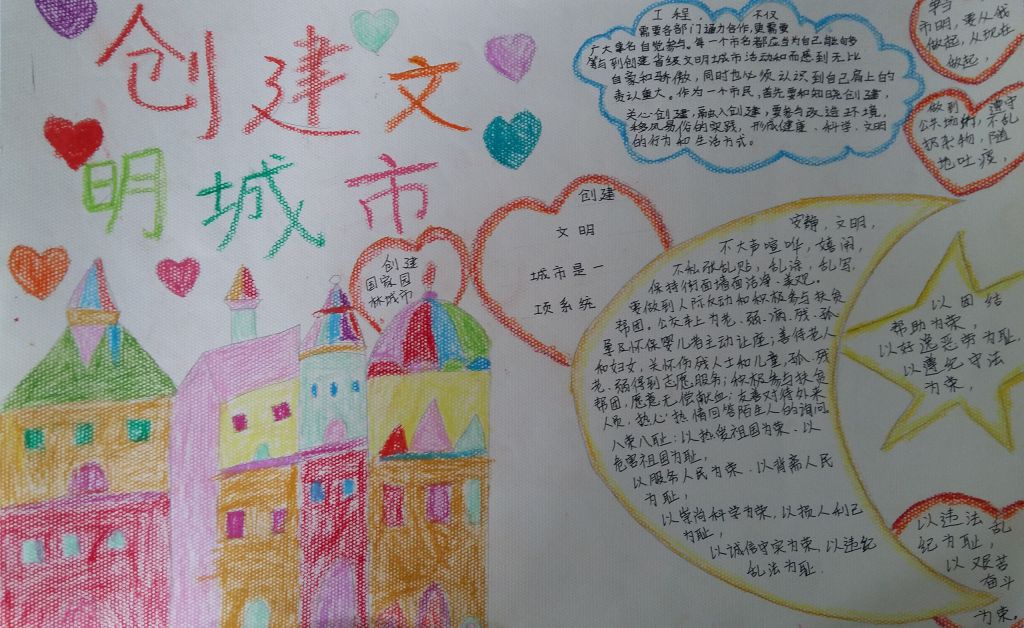 创建文
明城市
创建
国家园
林城市
创建
文明
城市是一
项系统
工程，不仅
需要各部门通力合作，更需要
广大拿名自觉参与。每一个市名都应当为自己能够
参与到创建省级文明城市活动和而感到无比
自豪和骄傲，同时也必须认识到自己肩上的
责认重大。作为一个市民，首先要和知晓创建，
关心创建，融入创建，要参与改造环境，
移风易俗的实践，形成健康、科学、文明
的行为和生活方式。
市明，要从我
做起，从现在
做起，
做到 遵守
公共地 不乱
扔杂物，随
地吐痰，
安静，文明，
不大声喧哗，嬉闹，
不私张乱贴，乱涂，乱写，
保持街面墙面洁净、美观。
要做到人际反动和积极参与扶贫
帮困。公交车上为老、弱、病、残、孤
孕及怀保婴儿者主动让座，善待老人
和妇女，关怀伤残人士和儿童，孤、残
老、弱得到志愿服务；积极参与扶贫
帮困，愿意无偿献血；友善对待外来
人员，热心热情回答陌生人的询问。
八荣八耻：以热爱祖国为荣、以
危害祖国为耻，
以服务人民为荣、以背离人民
为耻，
以崇尚科学为荣，以损人利己
为耻，
以诚信守实为荣，以违纪
乱法为耻．
以团结
帮助为荣，
以好逸恶劳为耻，
以遵纪守法
为荣，
以违法乱
纪为耻，
以艰苦
奋斗
为荣。